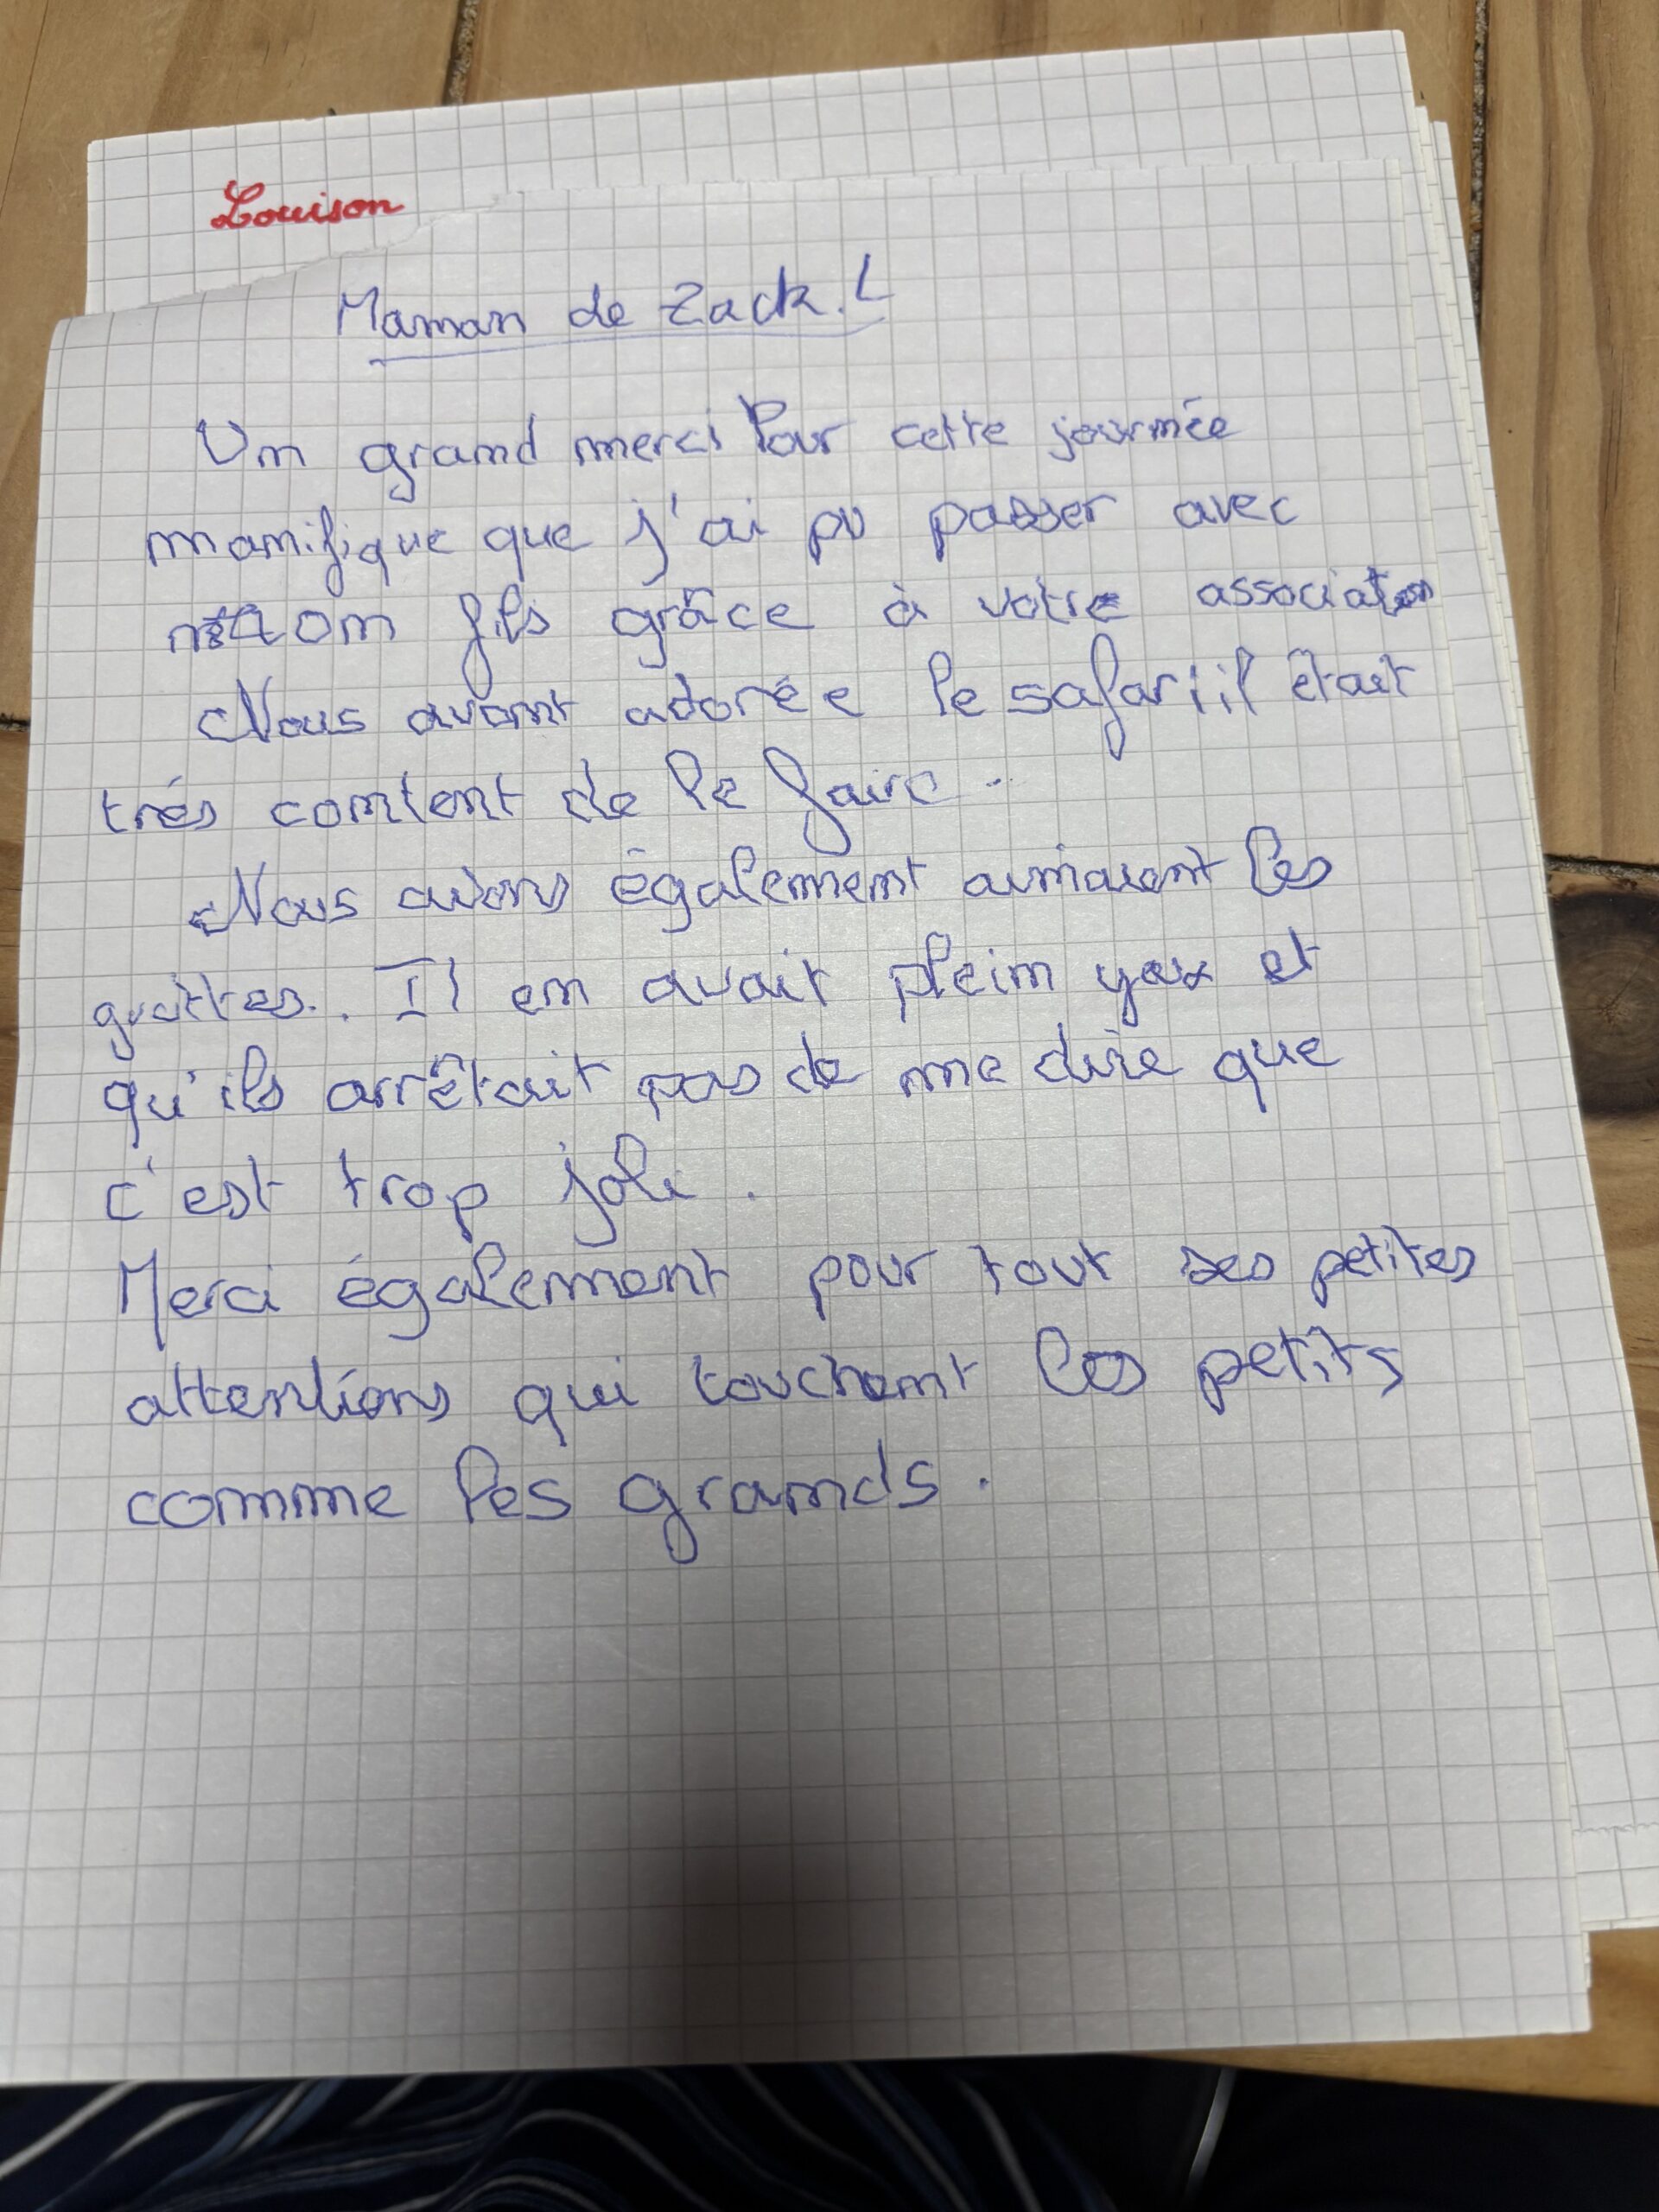 Louison
Maman de Zack.L
Un grand merci Pour cette journée
manifique que j'ai pu passer avec
mon fils grâce à votre association
Nous avont adorée le safari il était
très content de le faire.
Nous avions également aimaient les
grottes. Il en avait plein yeux et
qu'ils arrêtait pas de me dire que
c'est trop joli.
Merci également pour tout ses petites
attentions qui touchent les petits
comme les grands.